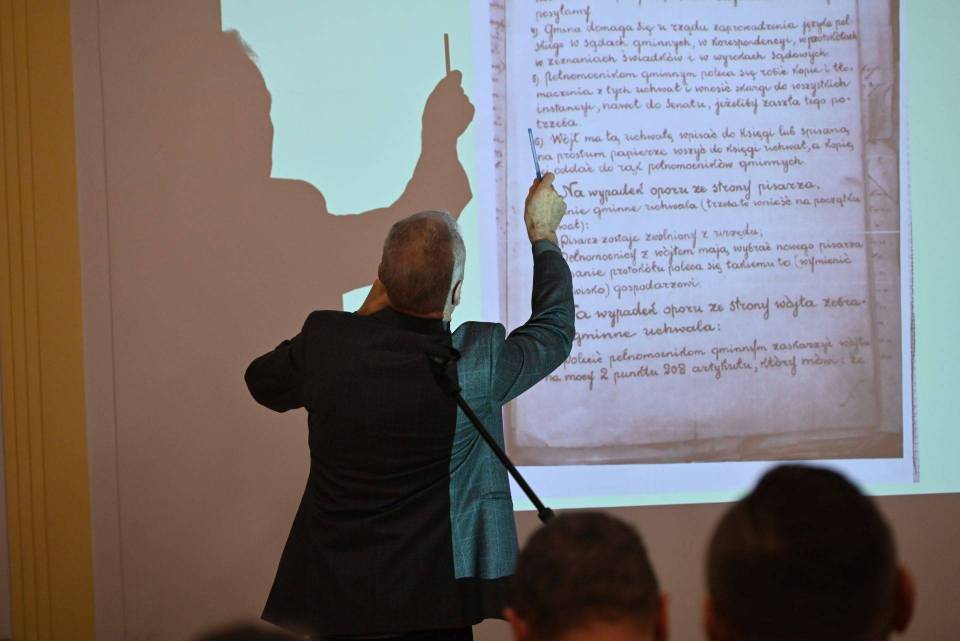 posyłamy.
4) Gmina domaga się u rządu zaprowadzenia języka pol-
skiego w sądach gminnych, w korespondencyi, w protokółach
w zeznaniach świadków i w wyrokach sądowych.
5) Pełnomocnikom gminnym poleca się robić kopie i tło-
maczenia z tych uchwał i wnosić skargi do wszystkich
instancyi, nawet do Senatu, jeżeliby zaszła tego po-
trzeba.
6) Wójt ma tą uchwałę wpisać do Księgi lub spisaną
na prostum papierze wszyć do Księgi uchwał, a kopię
oddać do rąk pełnomocników gminnych.
Na wypadek oporu ze strony pisarza,
gminne uchwala (trzeba to wnieść na początku
Pisarz zostaje zwolniony z urzędu,
Pełnomocnicy z wójtem mają wybrać nowego pisarza
protokółu poleca się takiemu to (wymienić
gospodarzowi.
Na wypadek oporu ze strony wójta zebra-
gminne uchwala:
Polecić pełnomocnikom gminnym zaskarżyć wójta
na mocy 2 punktu 208 artykułu, który mówi: że